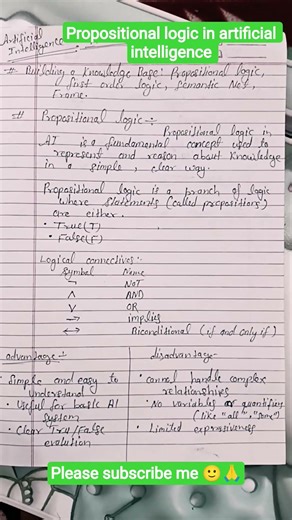 Propositional logic in artificial
intelligence
Artificial
Intelligence
# Building a Knowledge Base: Propositional logic,
first order logic, Semantic Net,
Frame.
# Propositional logic :-
Propositional logic in
AI is a fundamental concept used to
represent and reason about knowledge
in a simple, clear way.
Propositional logic is a branch of logic
where statements (called prepositions)
are either.
• True(T)
• False(F)
Logical connectives:-
Symbol Name
¬ NOT
∧ AND
∨ OR
⇒ implies
↔ Biconditional (if and only if)
advantage :- disadvantage-
• Simple and easy to understand
• Useful for basic AI system
• Clear Tru/False evalution
• cannot handle complex relationships
• No variables or quantifiers (like "all", "some")
• Limited expressiveness
Please subscribe me 🙂🙏